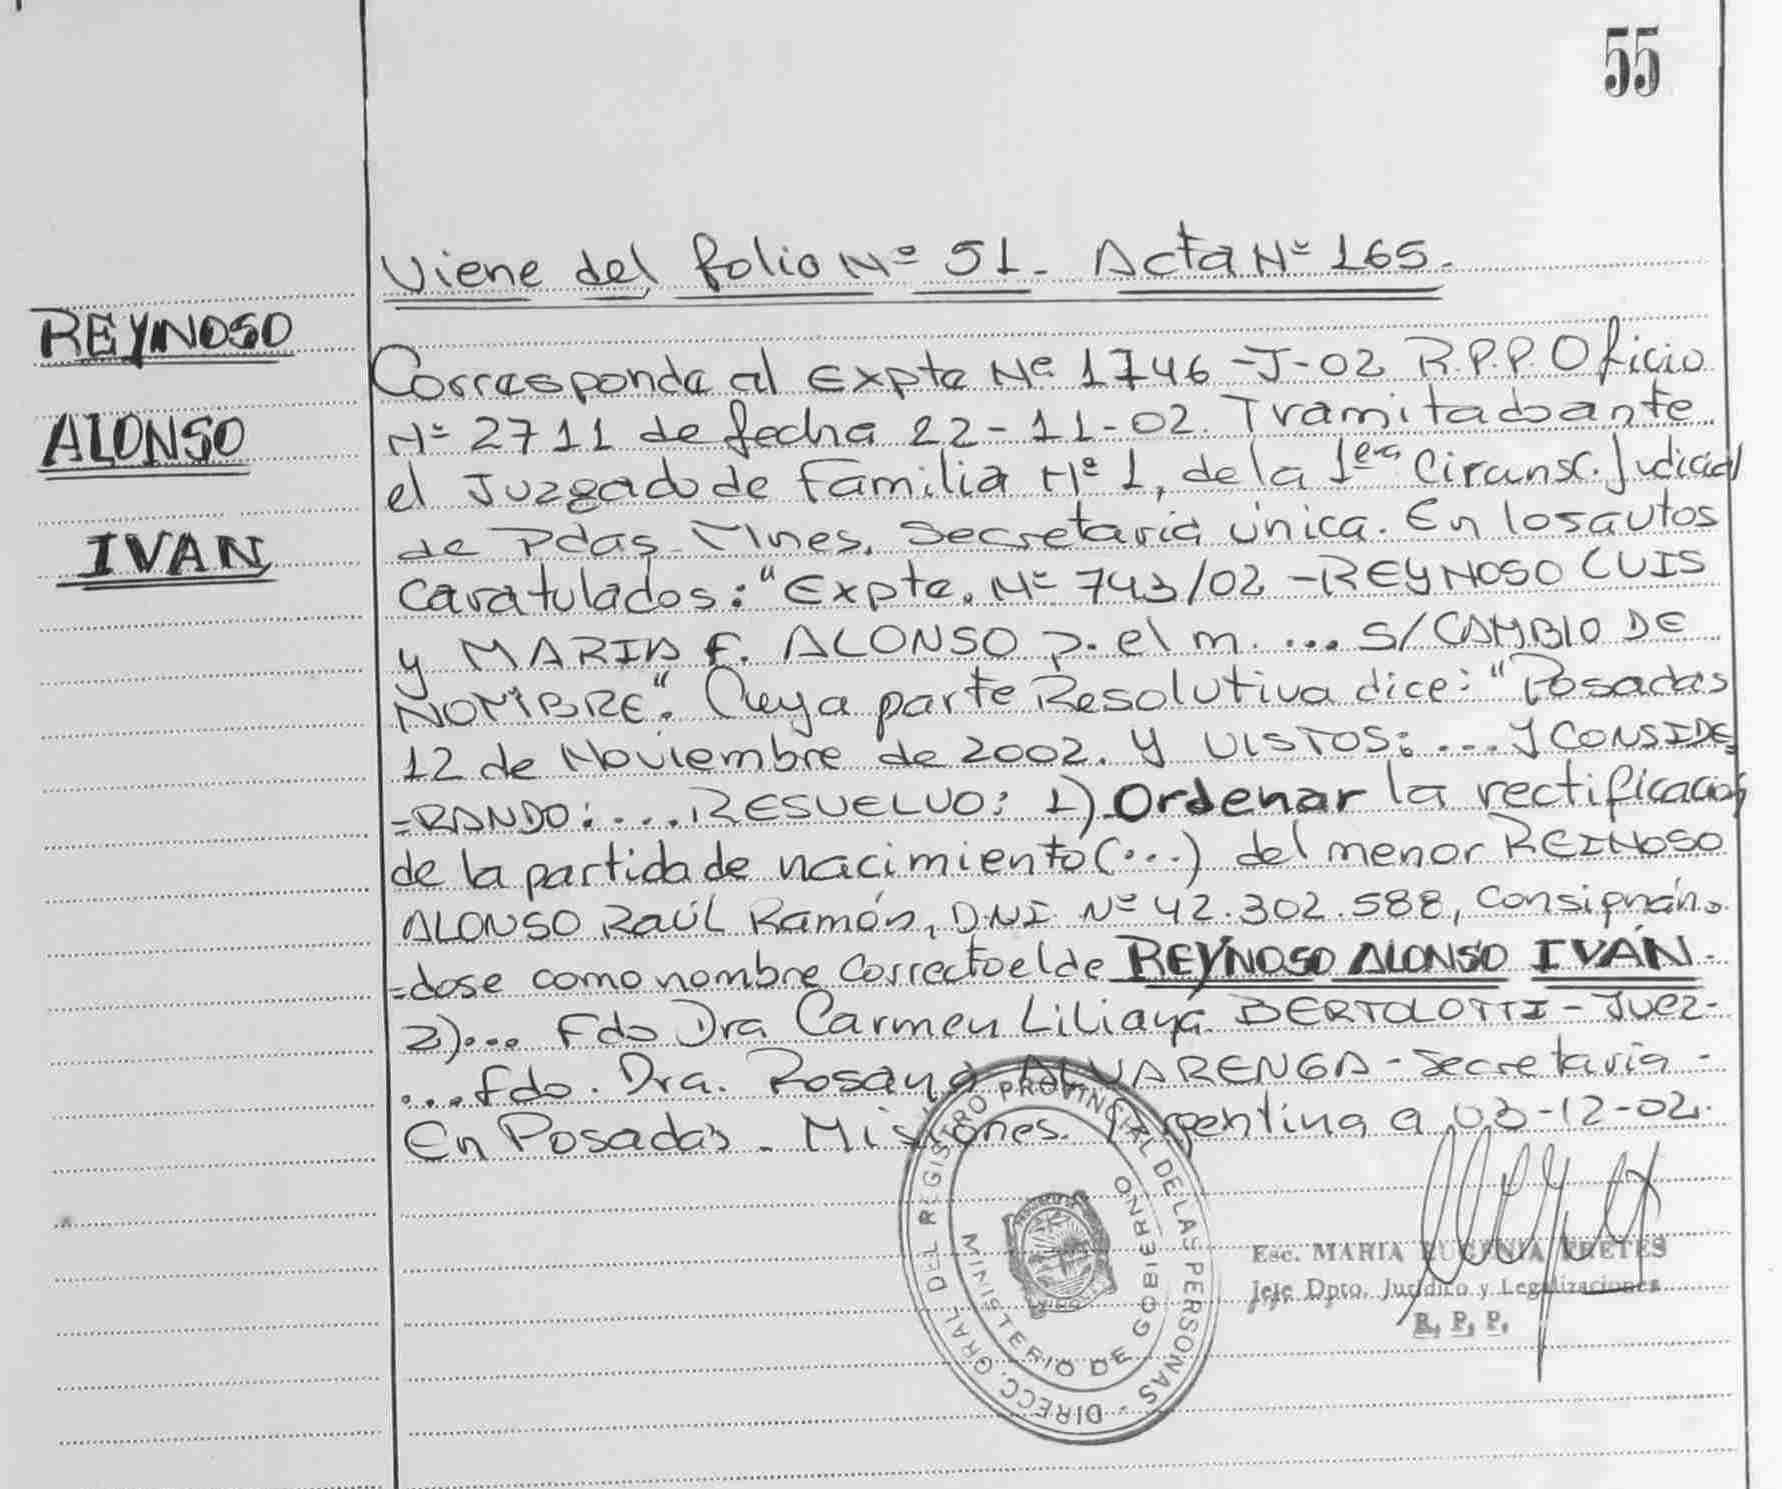 55
Viene del folio Nº 51. Acta Nº 165.
REYNOSO
ALONSO
IVAN
Corresponde al Expte Nº 1746-J-02 R.P.P. Oficio
Nº 2711 de fecha 22-11-02. Tramitado ante
el Juzgado de Familia Nº 1, de la 1era Circunsc. Judicial
de Pdas Mnes. Secretaría única. En los autos
Caratulados: "Expte. Nº 743/02 - REYNOSO LUIS
y MARIA F. ALONSO p. el m. ... S/ CAMBIO DE
NOMBRE". Cuya parte Resolutiva dice: "Posadas
12 de Noviembre de 2002. Y VISTOS: ... Y CONSIDE=
=RANDO: ... RESUELVO: 1) Ordenar la rectificación
de la partida de nacimiento (...) del menor REINOSO
ALONSO Raúl Ramón, D.N.I. Nº 42.302.588, Consignán=
=dose como nombre Correcto el de REYNOSO ALONSO IVÁN.
2)... Fdo Dra Carmen Liliana BERTOLOTTI - Juez-
...Fdo. Dra. Rosana ALVARENGA - Secretaria -
En Posadas - Misiones. Argentina a 03-12-02.
DIRECC. GRAL DEL REGISTRO PROVINCIAL DE LAS PERSONAS -
MINISTERIO DE GOBIERNO
Esc. MARIA EUGENIA FRETES
Jefe Dpto. Jurídico y Legalizaciones
R. P. P.